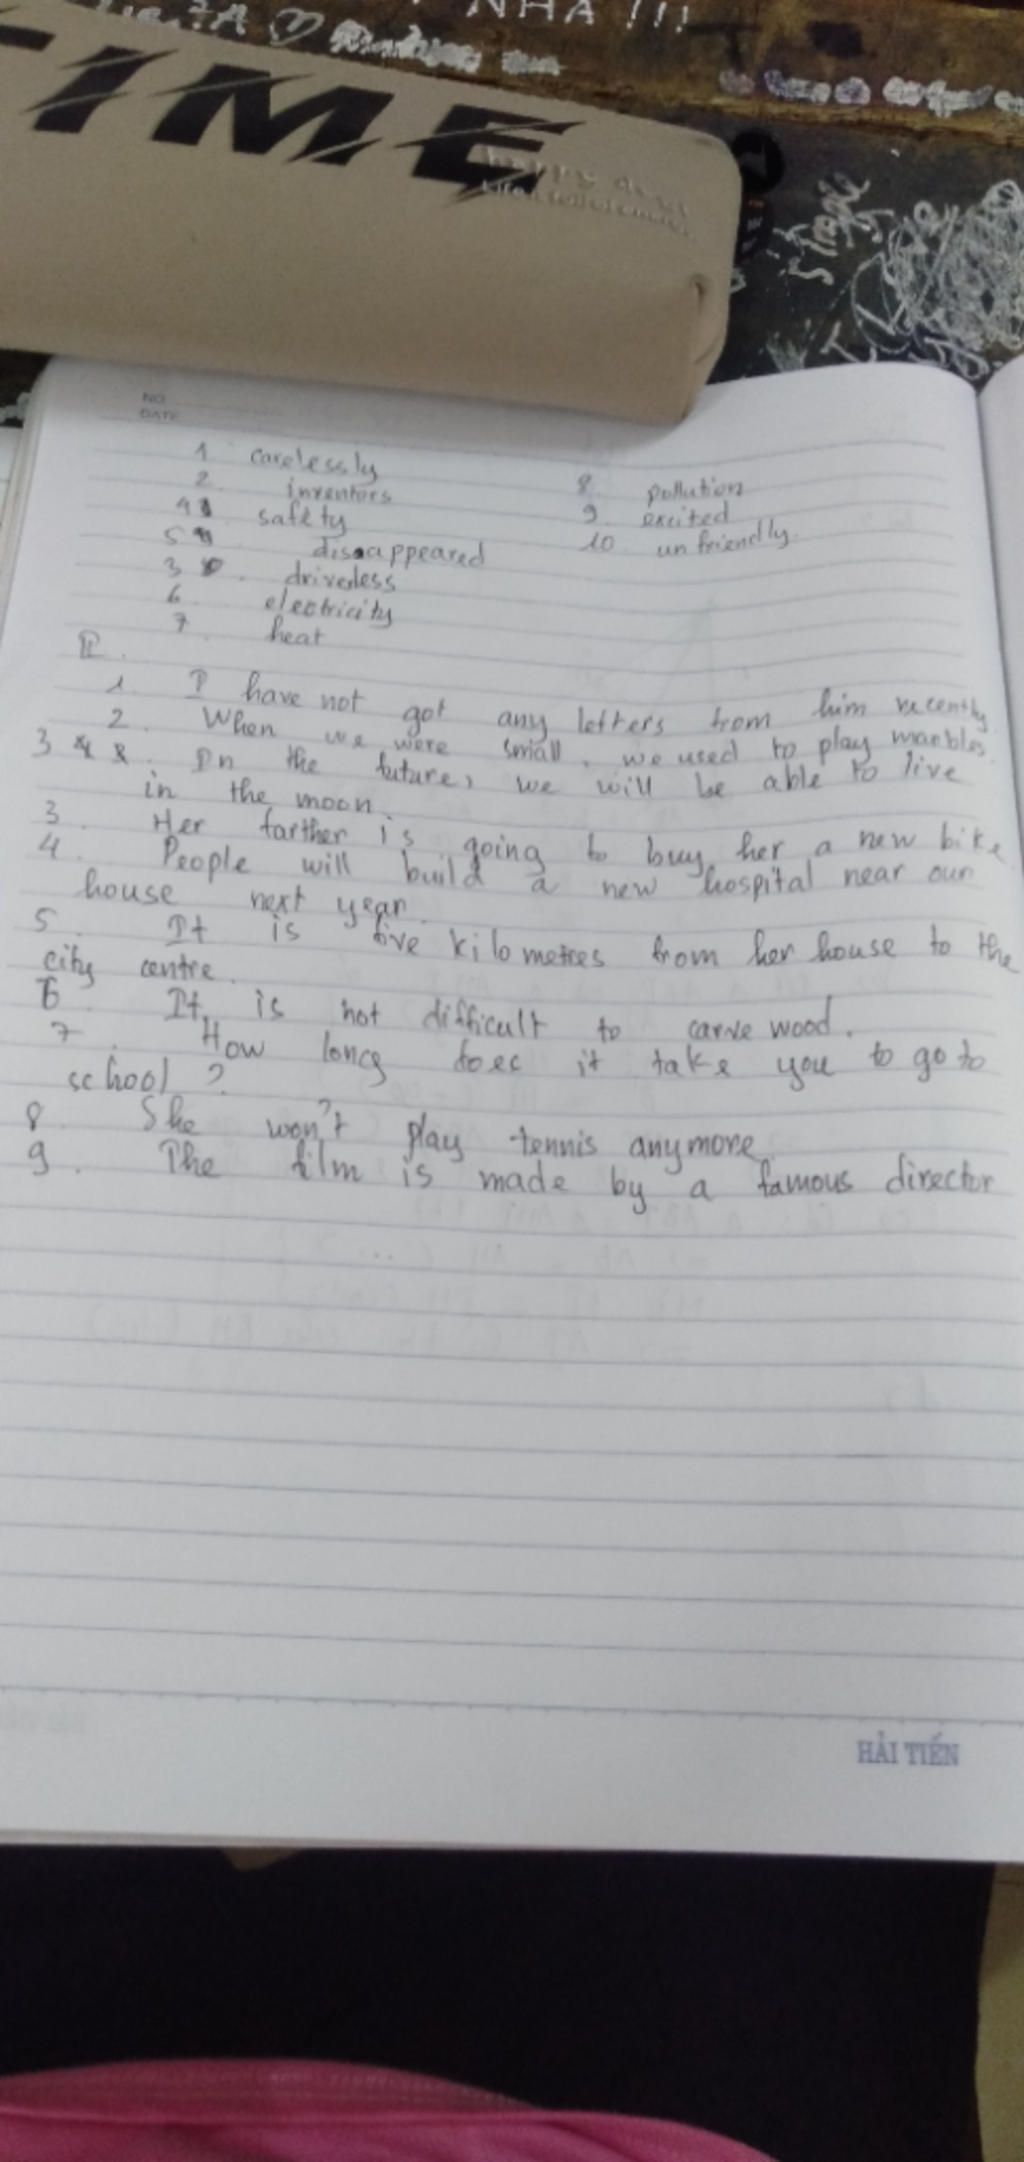 NHA !!!
TIME
happy
Simple
NO
DATE
1 carelessly
2. inventors
4 safety
5 disappeared
3 . driverless
6. electricity
7. heat
8. pollution
9. excited
10 unfriendly.
II.
1. I have not got any letters from him recently.
2. When we were small, we used to play marbles.
3 . In the future, we will be able to live
in the moon.
3. Her farther is going to buy her a new bike.
4. People will build a new hospital near our
house next year.
5. It is five kilometres from her house to the
city centre.
6. It is not difficult to carve wood.
7. How long does it take you to go to
school ?
8. She won't play tennis anymore.
9. The film is made by a famous director
HẢI TIẾN